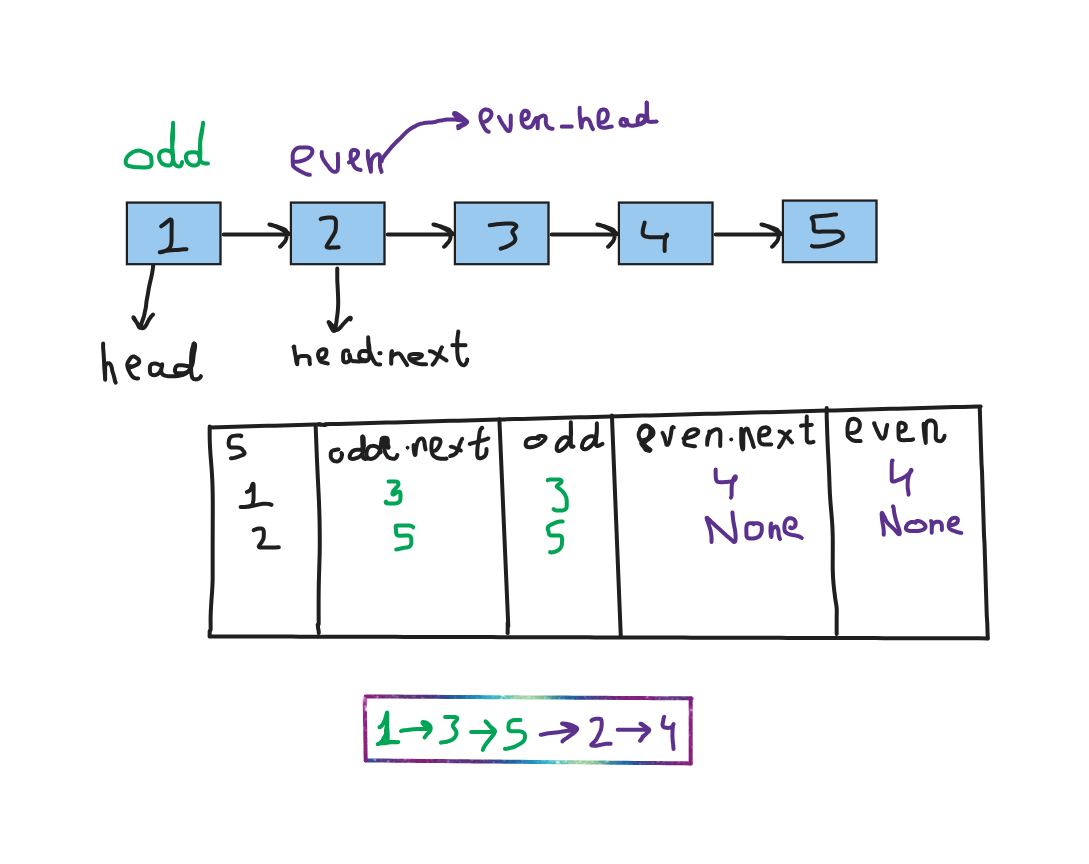 even_head
odd even
1 2 3 4 5
head head.next
5 odd.next odd even.next even
1 3 3 4 4
2 5 5 None None
1→3→5→2→4